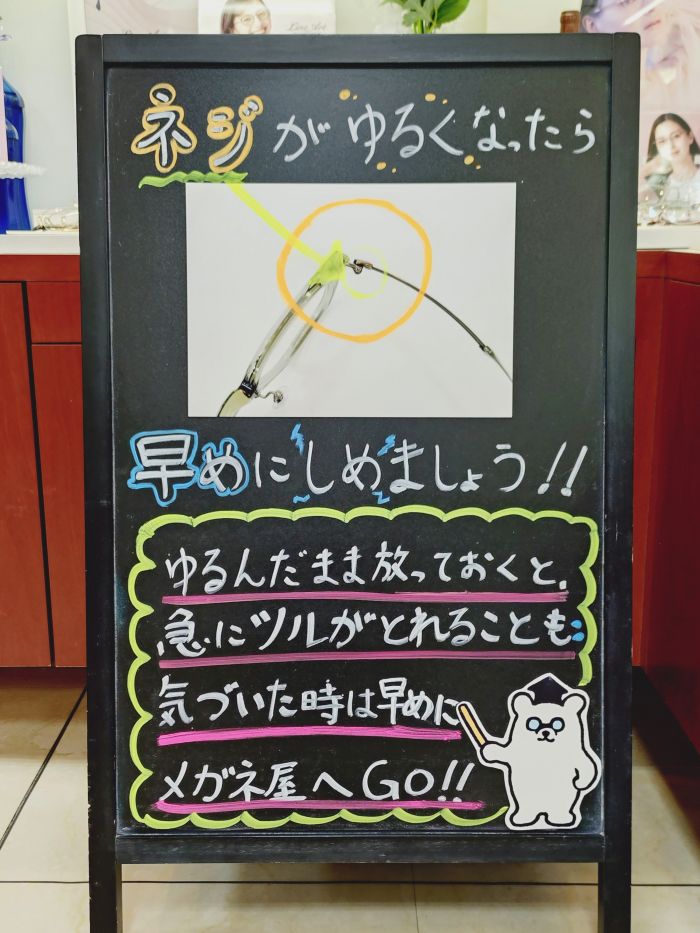 ネジがゆるくなったら
早めにしめましょう!!
ゆるんだまま放っておくと、
急にツルがとれることも
気づいた時は早めに
メガネ屋へGO!!